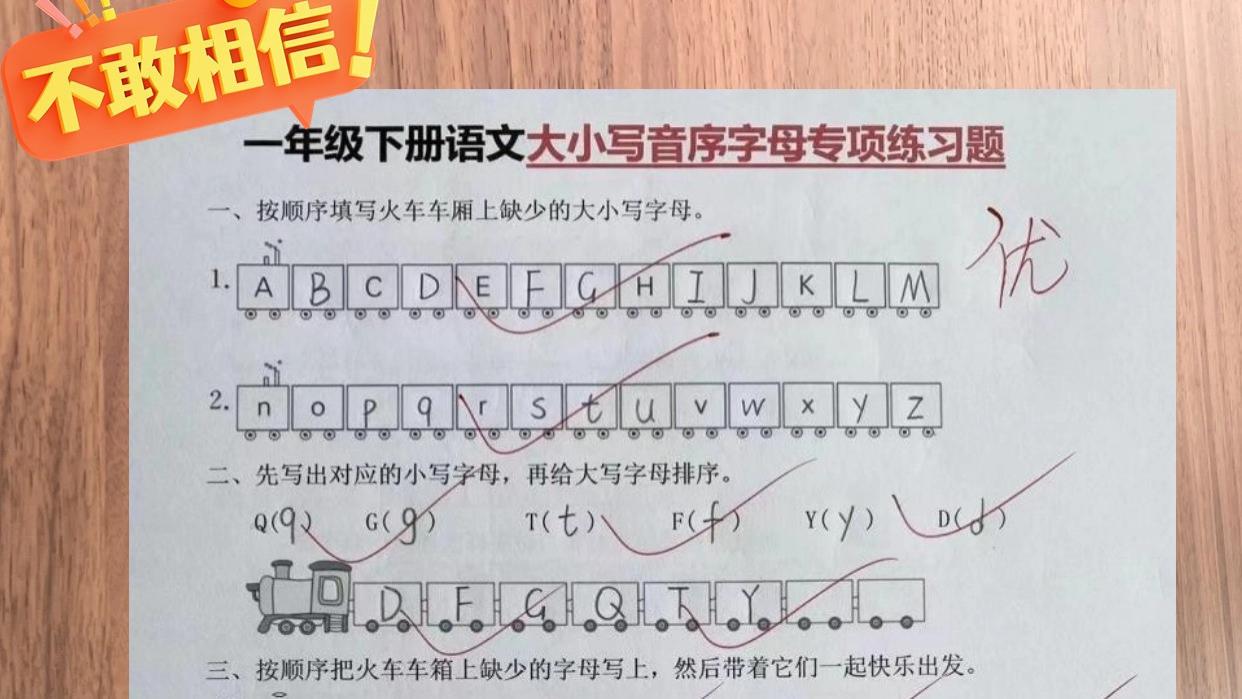 不敢相信!
一年级下册语文大小写音序字母专项练习题
一、按顺序填写火车车厢上缺少的大小写字母。
优
1. A B C D E F G H I J K L M
2. n o p q r s t u v w x y z
二、先写出对应的小写字母，再给大写字母排序。
Q(q) G(g) T(t) F(f) Y(y) D(d)
D F G Q T Y
三、按顺序把火车车箱上缺少的字母写上，然后带着它们一起快乐出发。